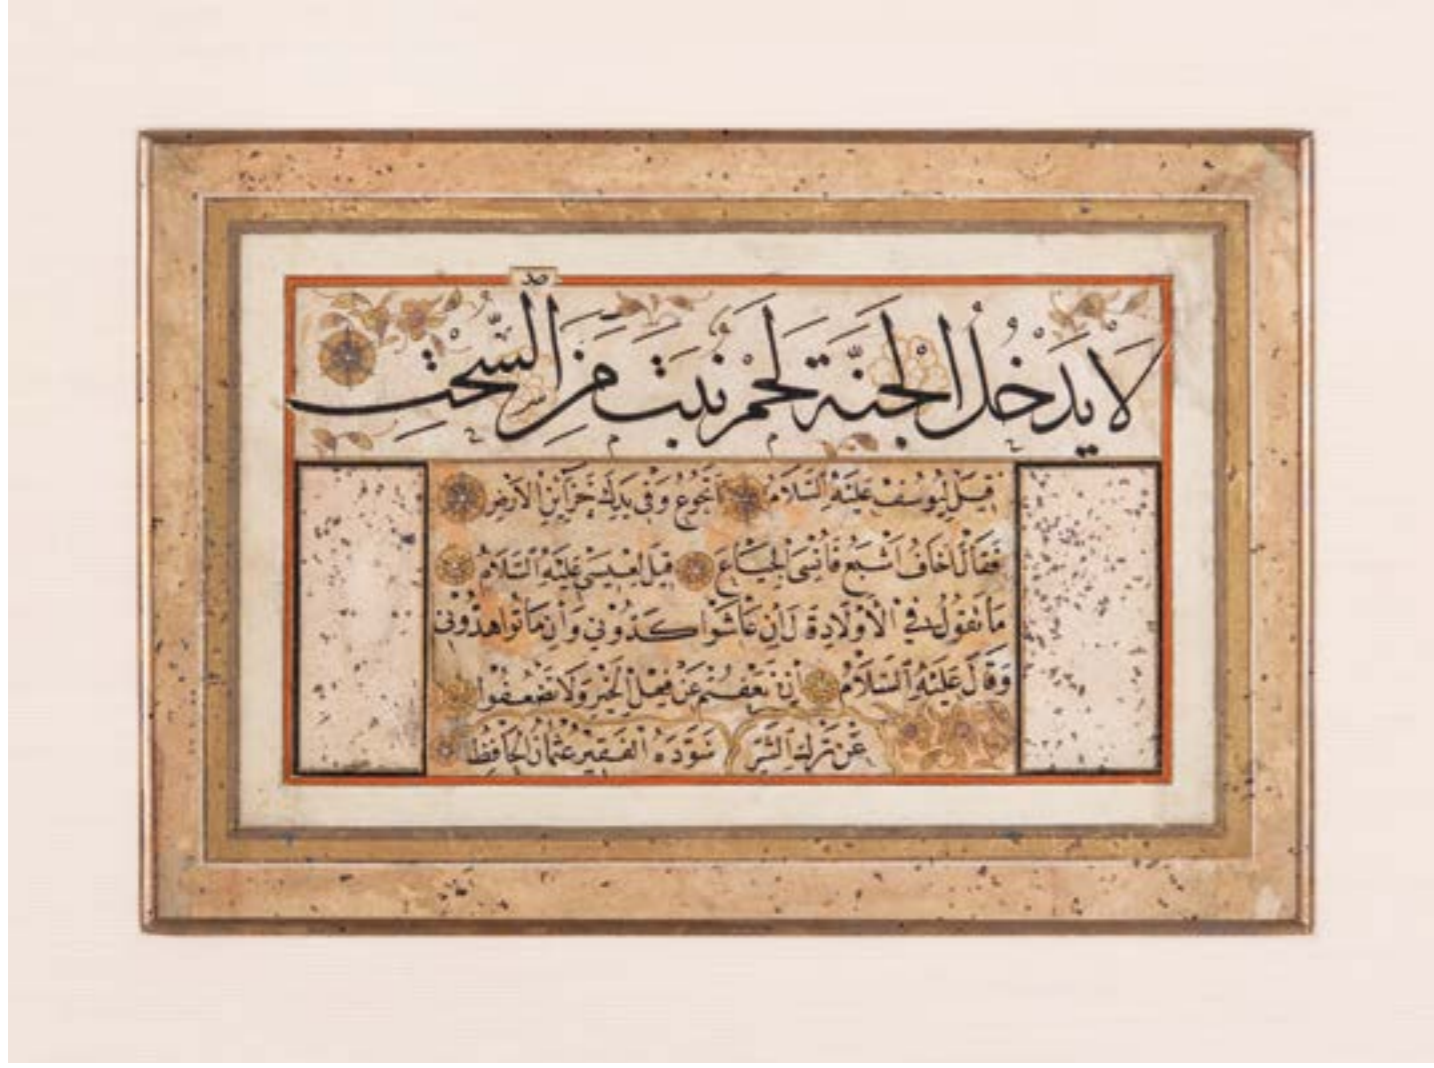 لا يدخل الجنة لحم نبت من السحت
قيل ليوسف عليه السلام اتجوع وفى يدك خزائن الارض
فقال اخاف اشبع فانسى الجياع قيل لعيسى عليه السلام
ما تقول فى الاولاد قال ان عاشوا كدونى وان ماتوا هدونى
وقال عليه السلام ان عن فعل الخير ولا تضعفوا
عن ترك الشر سوده الفقير عثمان الحافظ